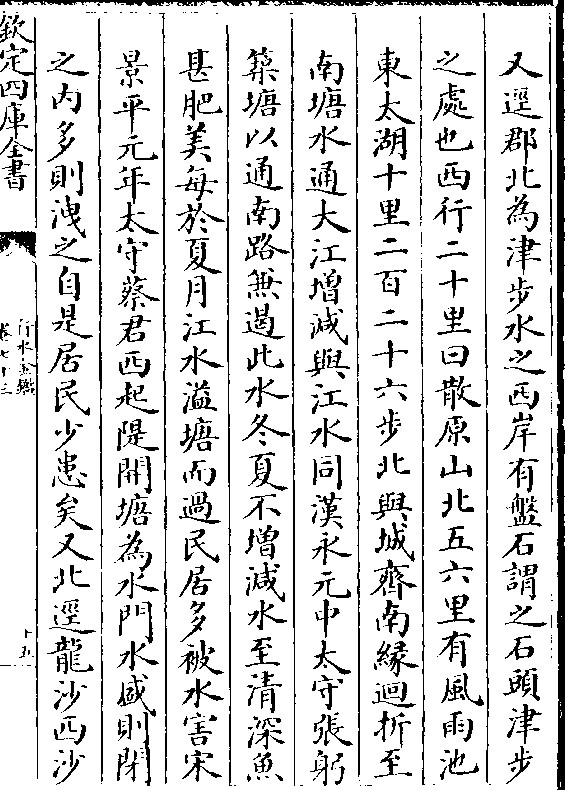 又逕郡北為津步水之西岸有盤石謂之石頭津步
之處也西行二十里曰散原山北五六里有風雨池
東太湖十里二百二十六步北與城齊南緣迴折至
南塘水通大江增減與江水同漢永元中太守張躬
築塘以通南路兼遏此水冬夏不增減水至清深魚
甚肥美每於夏月江水溢塘而過民居多被水害宋
景平元年太守蔡君西起隄開塘為水門水盛則閉
之内多則洩之自是居民少患矣又北逕龍沙西沙
欽定四庫全書
行水金鑑
卷七十三
十五